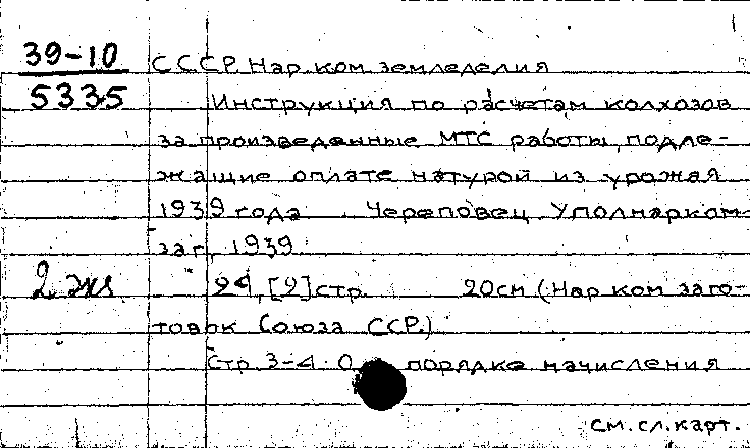 39-10
5335
СССР. Нар. ком. земледелия
Инструкция по расчетам колхозов
за произведенные МТС работы, подле-
жащие оплате натурой из урожая
1939 года. Череповец, Уполнарком-
заг, 1939.
2 экз
, [2] стр. 20см (Нар. ком. заго-
товок Союза ССР.)
Стр. 3-4: О порядке начисления
см. сл. карт.